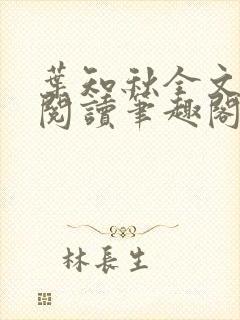 葉知秋全文
閱讀筆趣閣
林長生